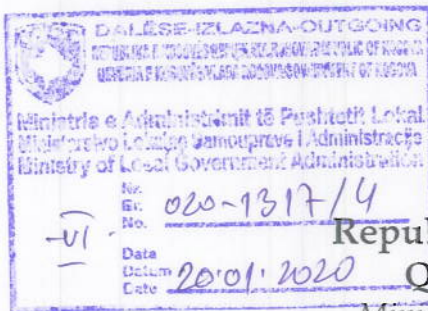 DALËSE-IZLAZNA-OUTGOING
Ministria e Administrimit të Pushtetit Lokal
Ministarstvo Lokalne Samouprave i Administracije
Ministry of Local Government Administration
Nr.
Br.
No. 020-1317/4
-VI-
Data
Datum
Date 20.01.2020
Repu
Q